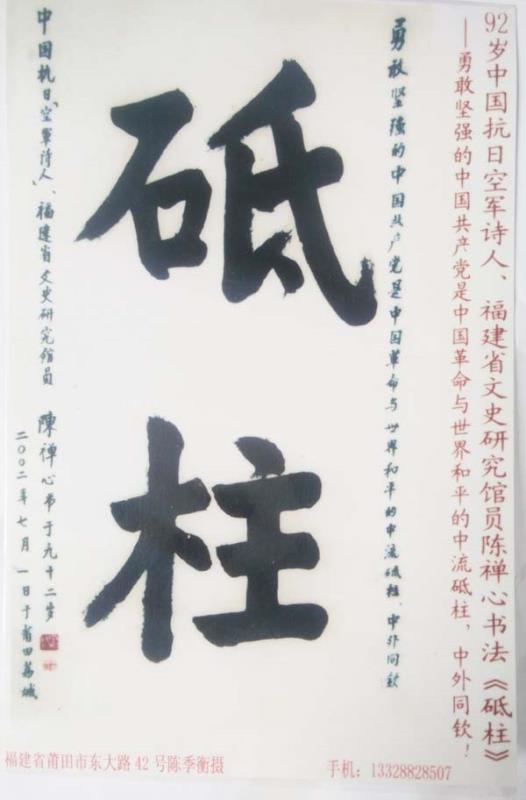 92岁中国抗日空军诗人、福建省文史研究馆员陈禅心书法《砥柱》
—勇敢坚强的中国共产党是中国革命与世界和平的中流砥柱，中外同钦！
勇敢坚强的中国共产党是中国革命与世界和平的中流砥柱、中外同钦
砥柱
中国抗日“空军诗人”、福建省文史研究馆员 陳禅心书于九十二岁
二〇〇二年七月一日于莆田荔城
福建省莆田市东大路42号陈季衡摄
手机：13328828507